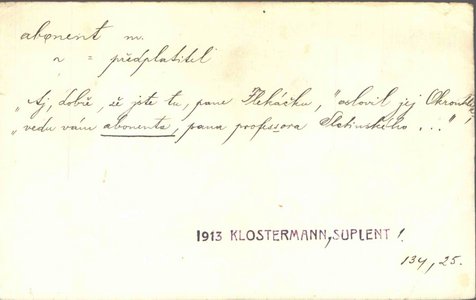 abonent m.
" = předplatitel
„Aj, dobře, že jste tu, pane Flekáčku," oslovil jej Okrouhlý,
„vedu vám abonenta, pana professora Slatinského ..."
1913 KLOSTERMANN, SUPLENT I.
134, 25.